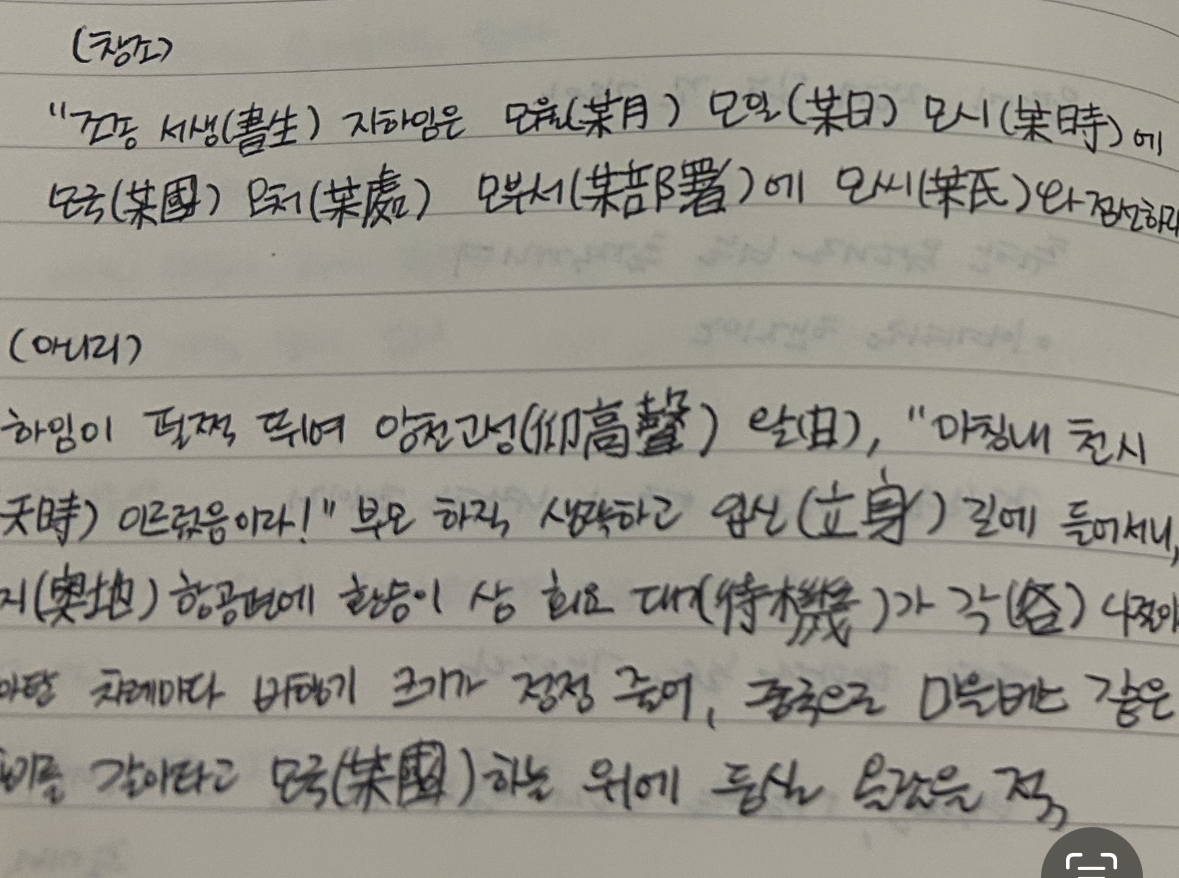 (창조)
"조동 서생(書生) 지하임은 모월(某月) 모일(某日) 모시(某時)에
모국(某國) 모처(某處) 모부서(某部署)에 모씨(某氏)와 접선하라
(아니리)
하임이 펄쩍 뛰며 앙천고성(仰高聲) 왈(曰), "마침내 천시
天時) 이르렀음이라!" 부모 하직 생각하고 입신(立身) 길에 들어서니,
지(奧地) 항공편에 환승이 삼 회요 대기(待機)가 각(各)
아탈 차례마다 비행기 크기가 점점 줄어, 종국으로 마을버스 같은
갈아타고 모국(某國) 하늘 위에 둥실 올랐을 적,